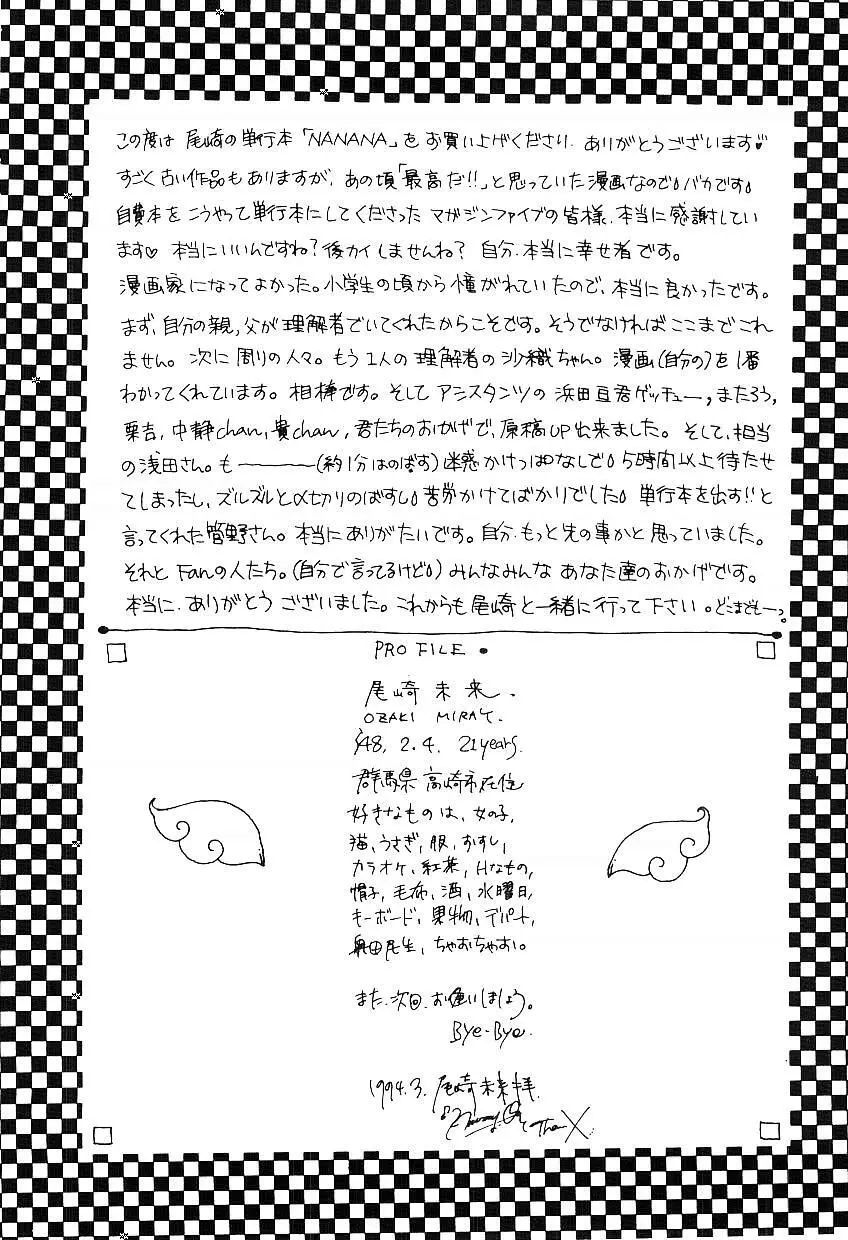 この度は 尾崎の単行本「NANANA」を お買い上げくださり、ありがとうございます♥
すごく古い作品もありますが、あの頃「最高だ!!」と思っていた漫画なので。バカです。
自費本を こうやって単行本にしてくださった マガジンファイブの皆様、本当に感謝してい
ます♡ 本当にいいんですね?後カイしませんね? 自分、本当に幸せ者です。
漫画家になってよかった。小学生の頃から憧がれていたので、本当に良かったです。
まず、自分の親。父が理解者でいてくれたからこそです。そうでなければここまでこれ
ません。次に周りの人々。もう1人の理解者の沙織ちゃん。漫画(自分の)を1番
わかってくれています。相棒です。そして アシスタンツの 浜田亘君ゲッチュー,またろう,
栗吉,中静chan,貴chan,君たちのおかげで、原稿UP出来ました。そして、担当
の浅田さん。も――――(約1分はのばす)迷惑かけっぱなしで。5時間以上待たせ
てしまったし、ズルズルと〆切りのばすし。苦労かけてばかりでした。単行本を出す!!と
言ってくれた菅野さん。本当にありがたいです。自分、もっと先の事かと思っていました。
それと Fanの人たち。(自分で言ってるけど。)みんなみんな あなた達のおかげです。
本当に、ありがとう ございました。これからも尾崎と一緒に行って下さい。どこまでもーっ。
PRO FILE.
尾崎 未来.
OZAKI MIRAY.
'48. 2. 4. 21years.
群馬県高崎市在住
好きなものは、女の子,
猫,うさぎ,服,おすし,
カラオケ,紅茶,Hなもの,
帽子,毛布,酒,水曜日,
キーボード,果物,デパート,
奥田民生,ちゃおちゃお。
また、次回、お逢いしましょう。
Bye-Bye.
1994.3. 尾崎未来拝.
ThanX